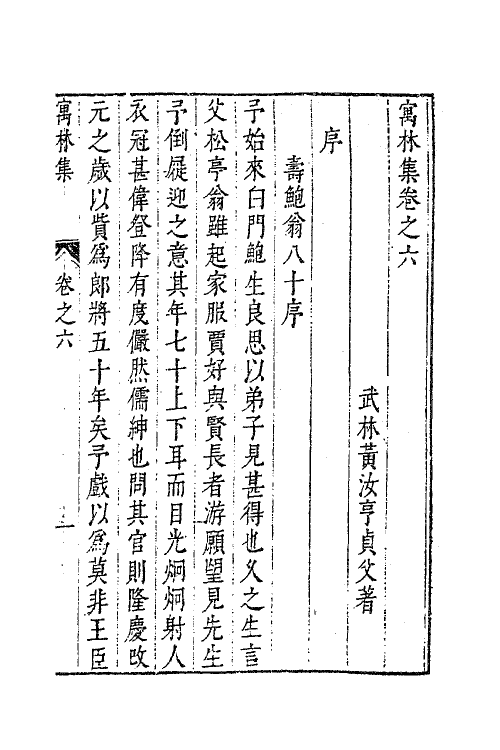 寓林集卷之六
武林黃汝亨貞父著
序
壽鮑翁八十序
予始來白門鮑生良思以弟子見甚得也久之生言
父松亭翁雖起家服賈好與賢長者游願望見先生
予倒屣迎之意其年七十上下耳而目光炯炯射人
衣冠甚偉登降有度儼然儒紳也問其官則隆慶改
元之歲以貲爲郎將五十年矣予戲以爲莫非王臣
寓林集 卷之六 一